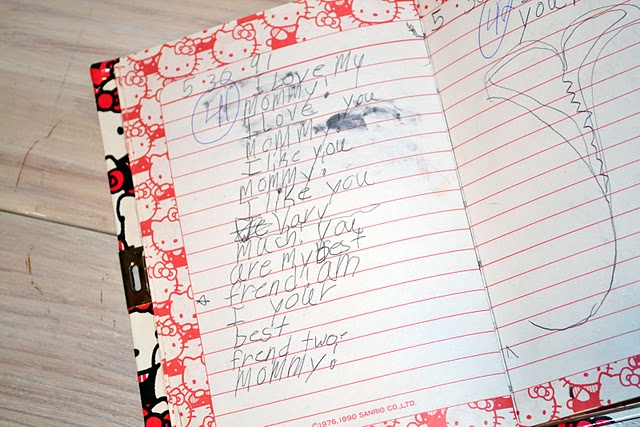 5 30 91
41
I Love My
Mommy!
I Love you
Mommy
I like you
Mommy!
I like you
vehary
much. you
are my best
frend am
I your
best
frend two-
Mommy!
©1976, 1990 SANRIO CO., LTD.
5
42
you